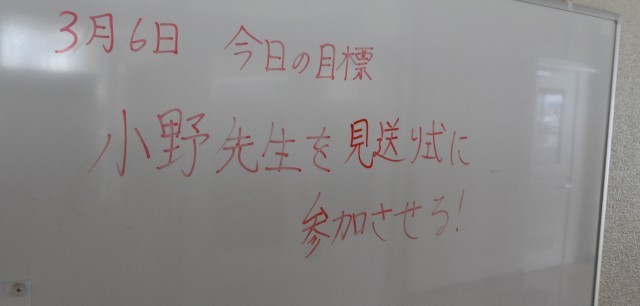 3月6日 今日の目標
小野先生を見送り式に
参加させる!